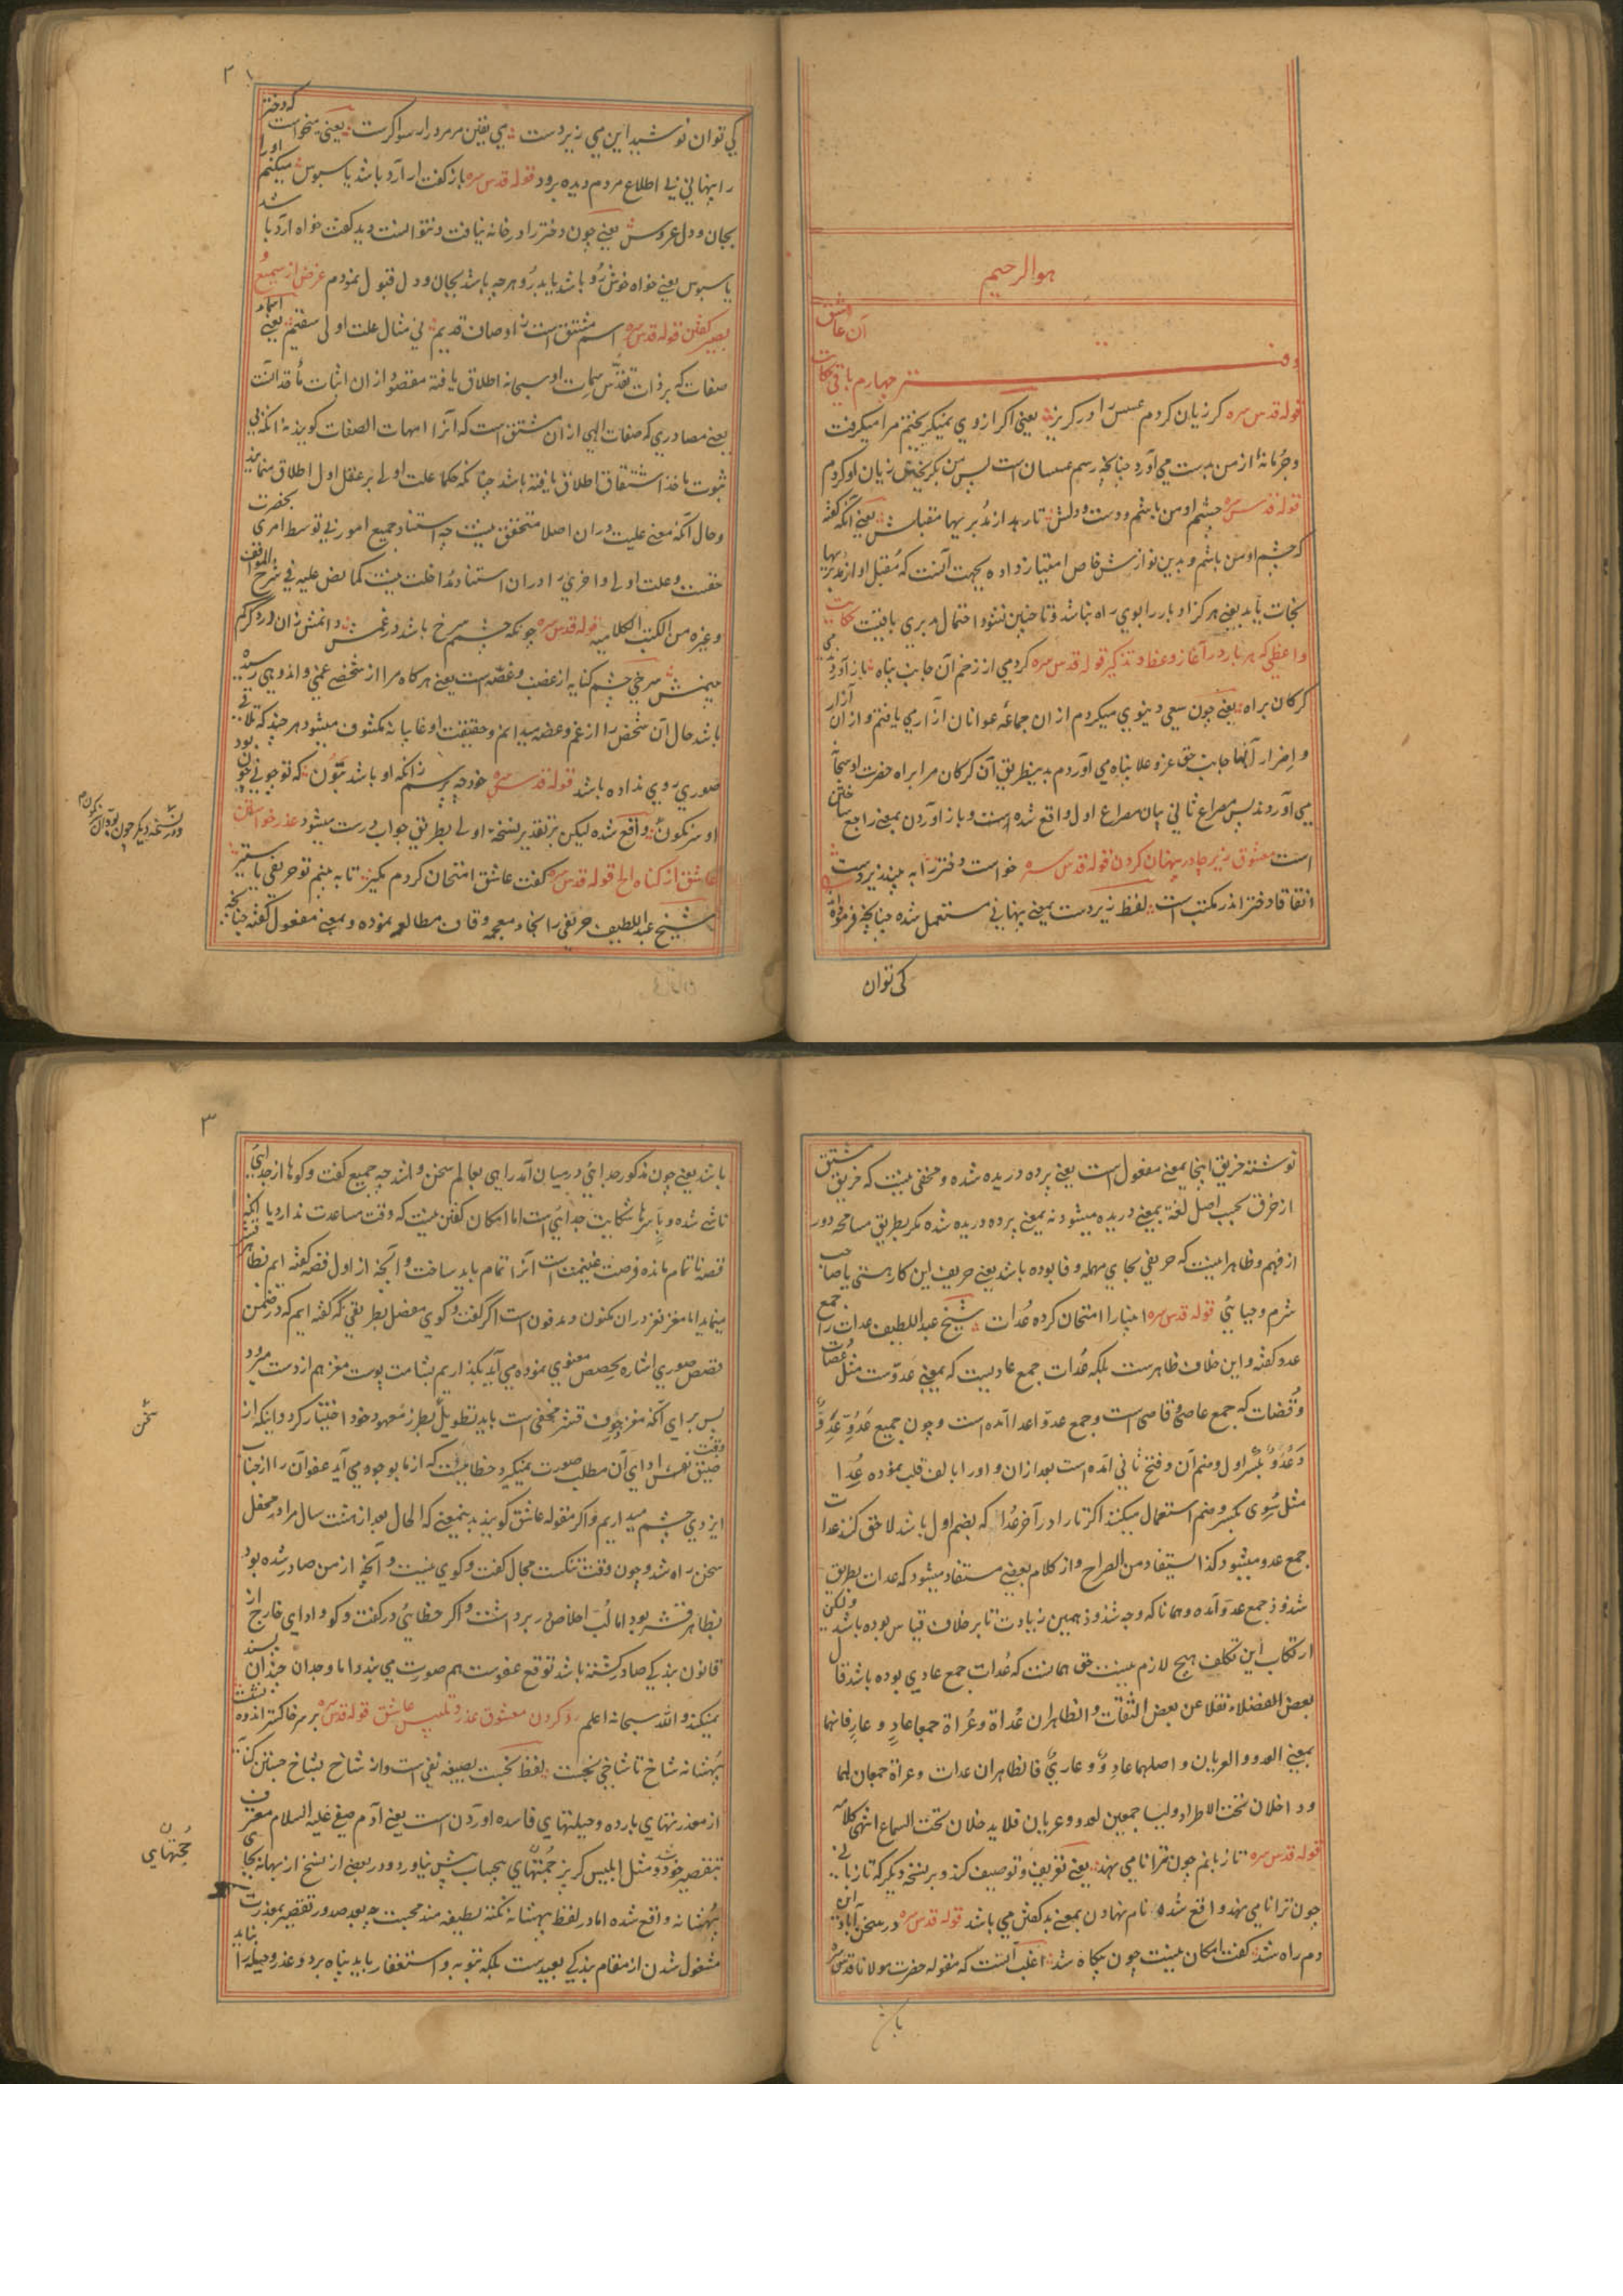 هو الرحیم
دفتر چهارم باقی حکایت آن عاشق
قوله قدس سره کر زیان کردم عسس را در کریز یعنی اکر از وی نمیکریختم مرا میکرفت
و جرمانه از من بدست می آورد چنانچه رسم عسسان است پس من بکریختن زیان او کردم
قوله قدس سره چشم او من باشم و دست و دلش تا رهد از مدبریها مقبلش یعنی آنکه کفته
که چشم او من باشم و بدین نوازش خاص امتیاز داده بجهت آنست که مقبل او از مدبریها
نجات یابد یعنی هرکز ادبار را بوی راه نباشد و تا چنین نشود احتمال مدبری باقیست حکایت
واعظی که هر بار در آغاز وعظ و تذکیر قوله قدس سره کردمی از زخم آن جانب پناه باز آوردندی
کرکان براه یعنی چون سعی دنیوی میکردم از ان جماعه عوانان آزار می یافتم و از ان آزار
و اضرار آنها جانب حق عز و علا پناه می آوردم بدینطریق آن کرکان مرا براه حضرت او سبحانه
می آوردند پس مصراع ثانی بیان مصراع اول واقع شده است و باز آوردن بمعنی راجع ساختن
است معشوق زیر چادر پنهان کردن قوله قدس سره خواست دختر را به بیند زیر دست
اتفاقا دختر اندر مکتب است لفظ زیر دست بمعنی پنهانی مستعمل شده چنانچه فرموده
کی توان
۲
کی توان نوشید این می زیر دست می یقین مر مرد را رسواکرست یعنی میخواست که دختر
را پنهانی بی اطلاع مردم دیده برود قوله قدس سره باز کفت ار آرد باشد یا سبوس میکنم اورا
بجان و دل عروس یعنی چون دختر را در خانه نیافت و نتوانست دید کفت خواه آرد باشد
یا سبوس یعنی خواه خوش رو باشد یا بد رو هرچه باشد بجان و دل قبول نمودم غرض از سمیع و
بصیر کفتن قوله قدس سره اسم مشتق است ز اوصاف قدیم نی مثال علت اولی سقیم یعنی اسماء
صفات که بر ذات تقدس سمات او سبحانه اطلاق یافته مقصود از ان اثبات مأخذ آنست
یعنی مصادری که صفات الهی از ان مشتق است که آنرا امهات الصفات کویند نه آنکه بی
ثبوت ماخذ اشتقاق اطلاق یافته باشد چنانکه حکما علت اولی بر عقل اول اطلاق مینمایند
و حال آنکه معنی علیت در ان اصلا متحقق نیست چه استناد جمیع امور بی توسط امری بحضرت
حقست و علت اولی و اخری را در ان استناد مداخلت نیست کما نص علیه فی شرح المواقف
و غیره من الکتب الکلامیه قوله قدس سره چونکه چشم سرخ باشد در غمش دانمش زان درد کرکم
بینمش سرخی چشم کنایه از غضب و غصه است یعنی هرکاه مرا از شخصی غمی و اندوهی رسیده
باشد حال آن شخص را از غم و غصه میدانم و حقیقت او غایبانه مکشوف میشود هر چند که تلاقی
صوری روی نداده باشد قوله قدس سره خود چه پرسم زانکه او باشد بتون که تو چونی چون بود
او سرنکون واقع شده لیکن بر تقدیر نسخه اولی بطریق جواب درست میشود عذر خواستن
عاشق از کناه الخ قوله قدس سره کفت عاشق امتحان کردم مکیر تا به بینم تو حریفی یا ستیر
شیخ عبد اللطیف حریفی را بخاء معجمه و قاف مطالعه نموده و بمعنی مفعول کفته چنانچه
و در نسخه دیکر چون بود آن نکون
نوشته خریق اینجا بمعنی مفعول است یعنی پرده دریده شده و مخفی نیست که خریق مشتق
از خرق بحسب اصل لغة بمعنی دریده میشود نه بمعنی پرده دریده شده مکر بطریق مسامحه دور
از فهم و ظاهر اینست که حریفی بحای مهمله و فا بوده باشد یعنی حریف این کار هستی یا صاحب
شرم و حیائی قوله قدس سره انبیا را امتحان کرده عدات شیخ عبد اللطیف عدات را جمع
عدو کفته و این خلاف ظاهرست بلکه عدات جمع عادیست که بمعنی عدوست مثل عصات
و قضات که جمع عاصی و قاضی است و جمع عدو اعدا آمده است و چون جمیع عدو عدو
و عدو بکسر اول و ضم آن و فتح ثانی آمده است بعد از ان واو را بالف قلب نموده عدا
مثل سوی بکسر و ضم استعمال میکنند اکر تا را در آخر عدا که بضم اول باشد لاحق کنند عدات
جمع عدو میشود کذا استیفاد من الصراح و از کلام بعضی مستفاد میشود که عدات بطریق
شذوذ جمع عدو آمده و همانا که وجه شذوذ همین زیادت تا بر خلاف قیاس بوده باشد ولکن
ارتکاب این تکلف هیچ لازم نیست حق همانست که عدات جمع عادی بوده باشد قال
بعض الفضلاء نقلا عن بعض الثقات و الظاهر ان عداة و عراة جمعا عاد و عار فانهما
بمعنی العدو و العریان و اصلهما عادو و عاری فالظاهر ان عدات و عراة جمعان لهما
و داخلان تحت الاطراد و لیسا جمعین لعدو و عریان فلا یدخلان تحت السماع انتهی کلامه
قوله قدس سره تا زبانم چون ترا نامی نهد یعنی تعریف و توصیف کند و بر نسخه دیکر که تا زبانی
چون ترا نامی نهد واقع شده نام نهادن بمعنی بد کفتن می باشد قوله قدس سره در سخن آباد این
دم راه شد کفت امکان نیست چون بیکاه شد اغلب آنست که مقوله حضرت مولانا قدس سره
باش
۳
باشد یعنی چون مذکور جدائی در میان آمد راهی بعالم سخن واشد چه جمیع کفت و کوها از جدائی
ناشی شده و با سرها شکایت جدائی است اما امکان کفتن نیست که وقت مساعدت ندارد یا آنکه
قصه ناتمام مانده فرصت غنیمت است آنرا تمام باید ساخت و آنچه از اول قصه کفته ایم بظاهر قشر
مینماید اما مغز نغز در ان مکنون و مدفون است اکر کفت و کوی مفصل بطریقی که کفته ایم که در ضمن
قصص صوری اشاره بحصص معنوی نموده می آید بکذاریم بشامت پوست مغز هم از دست میرود
پس برای آنکه مغز جوف قشر مخفی است باید تطویل بطرز معهود خود اختیار کرد و اینکه از
ضیق نفس ادای آن مطلب صورت نمیکیرد خطائیست که از ما بوجود می آید عفو آن را از جناب
ایزدی چشم میداریم و اکر مقوله عاشق کویند بدینمعنی که الحال بعد از هشت سال مرا در محفل
سخن راه شد و چون وقت تنکست مجال کفت و کوی نیست و آنچه از من صادر شده بود
بظاهر قشر بود اما لب اخلاص در بر داشت و اکر خطائی در کفت و کو و ادای خارج از
قانون بندکی صادر کشته باشد توقع عفوست هم صورت می بندد اما وجدان چندان پسند
نمیکند و الله سبحانه اعلم رد کردن معشوق عذر و تلبیس عاشق قوله قدس سره بر سر خاکستر اندوه نشست
بهانه شاخ تا شاخی نجست لفظ نجست بصیغه نفی است و از شاخ بشاخ جستن کنایه
از معذرتهای بارده و حیلتهای فاسده آوردن است یعنی آدم صفی علیه السلام معترف
بتقصیر خود شد و مثل ابلیس کربز حجتهای بیحساب پیش نیاورد و در بعضی از نسخ از بهانه بجای
بهانه واقع شده اما در لفظ بهانه نکته لطیفه مندمجست چه بعد صدور تقصیر بمعذرت
مشغول شدن از مقام بندکی بعیدست بلکه بتوبه و استغفار باید پناه برد و عذر و حیله را نباید
سخن
حجتهای